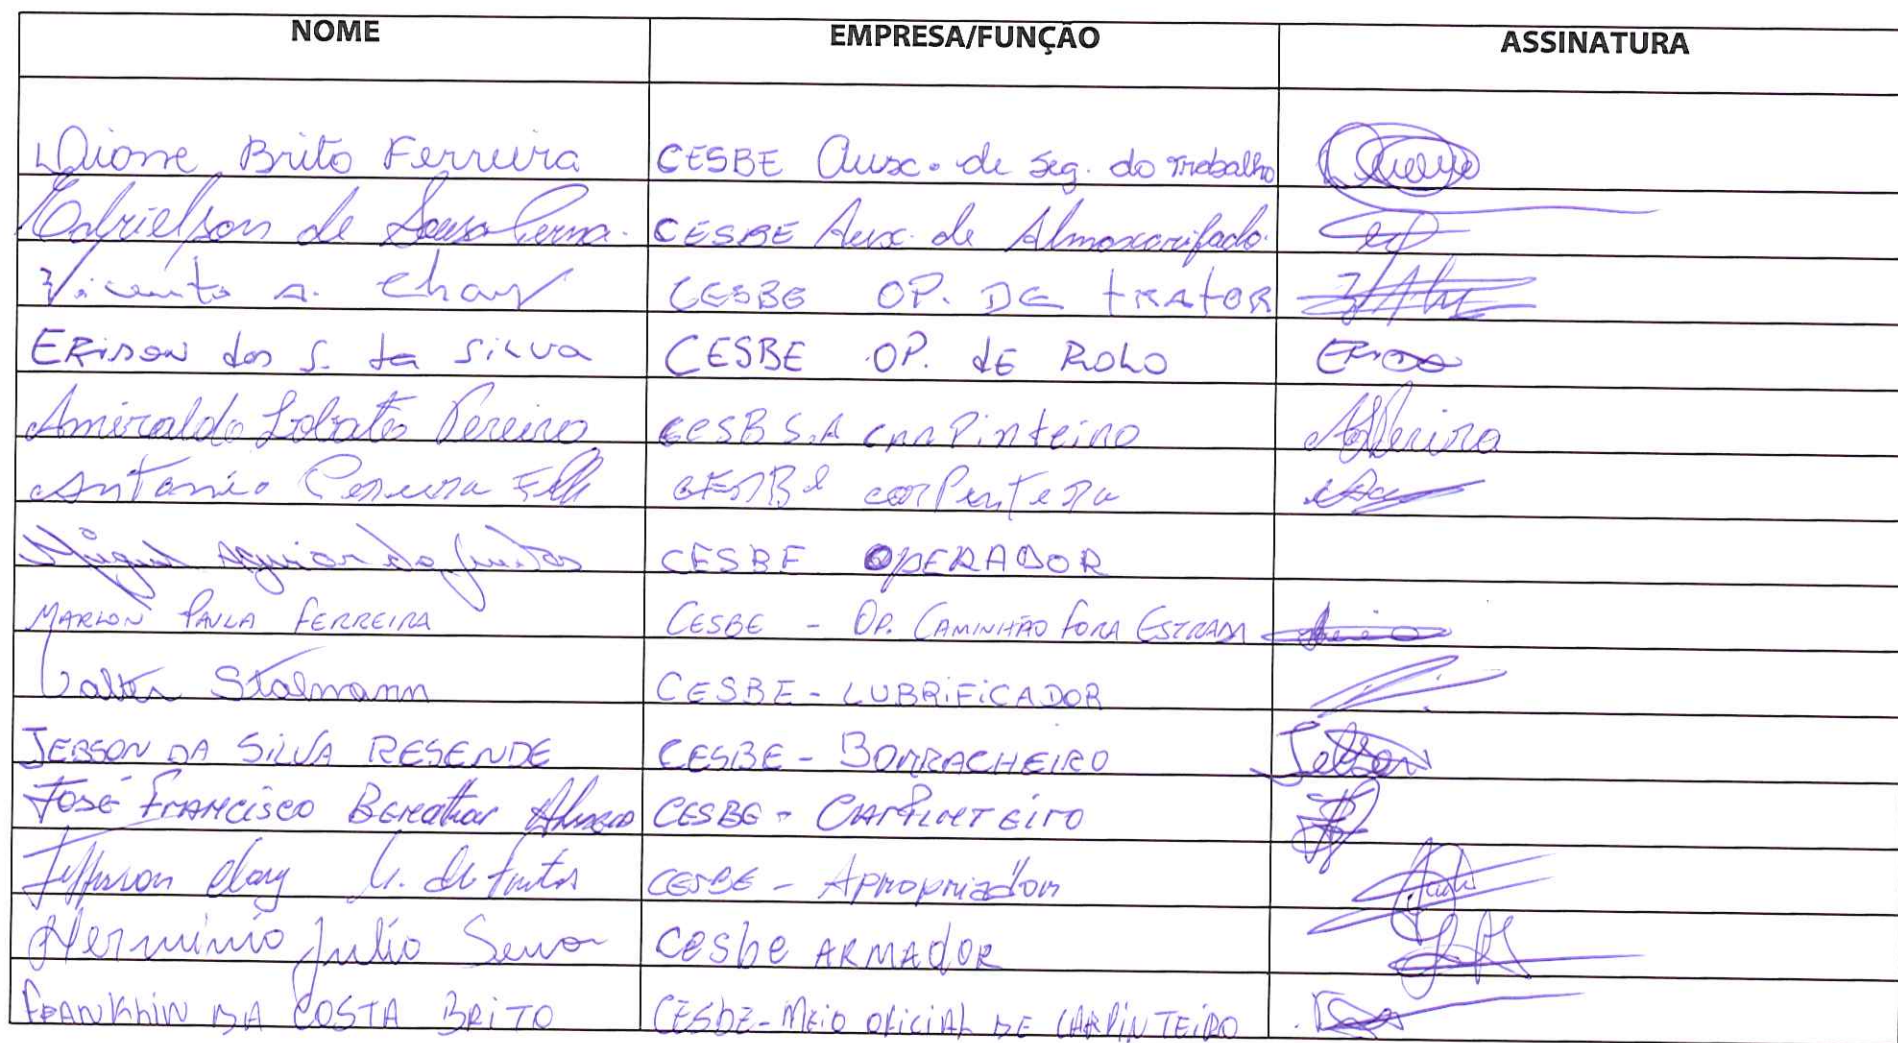 NOME EMPRESA/FUNÇÃO ASSINATURA
Dione Brito Ferreira CESBE Auxc. de Seg. do Trabalho
Edrielson de Sousa CESBE Aux. de Almoxarifado.
Vicente A. Chaves CESBE OP. DE tRAtOR
ERison dos S. da SiLVA CESBE OP. dE ROLO Erison
Amiraldo Lobato Pereira CESB S.A CARPinteiro
Antonio Pereira carPentera
Miguel Aguiar dos Santos CESBE OPERADOR
MARLON PAULA FERREIRA CESBE - OP. CAMINHÃO FORA ESTRADA
Valter Stalmann CESBE - LUBRiFiCADOR
JEBSON DA SiLVA RESENDE CESBE - BORRACHEIRO Jebson
José FRANCISCO CESBE - CARPINTEIRO
Jefferson CESBE - Apropriador
Herminio Julio Sena Cesbe ARMAdOR
FRANKhiN DA COSTA BRiTO CESBE-MEiO OFiCiAL DE CARPiNTEiRO